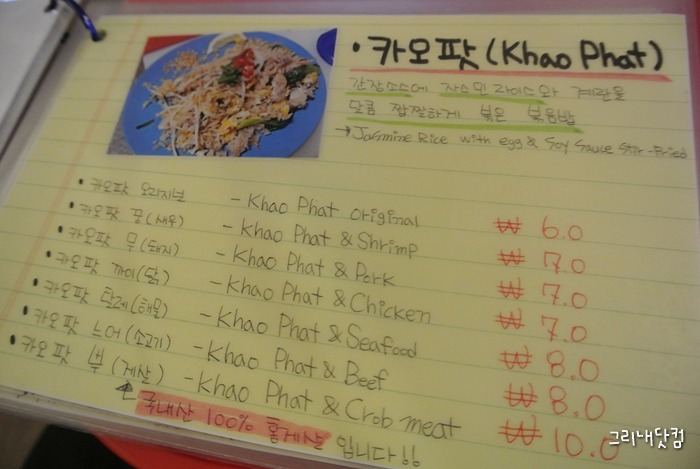 • 카오팟 (Khao Phat)
간장소스에 자스민 라이스와 계란을
달콤 짭짤하게 볶은 볶음밥
→ Jasmine Rice with egg & Soy Sauce Stir-Fried
• 카오팟 오리지널 - Khao Phat original ₩ 6.0
• 카오팟 꿍(새우) - Khao Phat & Shrimp ₩ 7.0
• 카오팟 무(돼지) - Khao Phat & Pork ₩ 7.0
• 카오팟 까이(닭) - Khao Phat & Chicken ₩ 7.0
• 카오팟 탈레(해물) - Khao Phat & Seafood ₩ 8.0
• 카오팟 느어(소고기) - Khao Phat & Beef ₩ 8.0
• 카오팟 뿌(게살) - Khao Phat & Crob meat ₩ 10.0
국내산 100% 홍게살 입니다!!
그리내닷컴